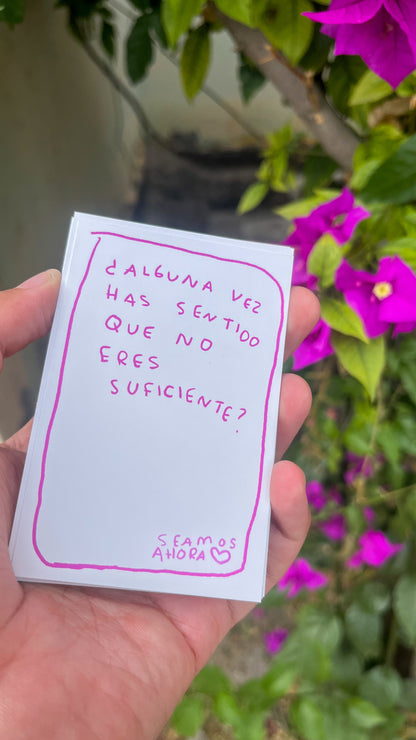 ¿ALGUNA VEZ
HAS SENTIDO
QUE NO
ERES
SUFICIENTE?
SEAMOS
AHORA